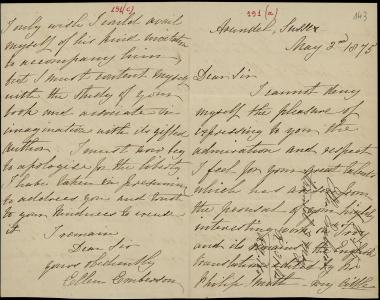 191 (a)
163
Arundel, Sussex
May 3rd 1875
Dear Sir
I cannot deny
myself the pleasure of
expressing to you the
admiration and respect
I feel for your great talents
which has arisen from
the perusal of your highly
interesting work on Troy
and its remains the English
translation edited by Dr
Philip Smith - my little
191(c)
I only wish I could avail
myself of his kind invitation
to accompany him
but I must content myself
with the study of your
book and associate in
imagination with its gifted
author. I must now beg
to apologise for the liberty
I have taken in presuming
to address you and trust
to your kindness to excuse
it
I remain
Dear Sir
yours obediently
Ellen Emberson